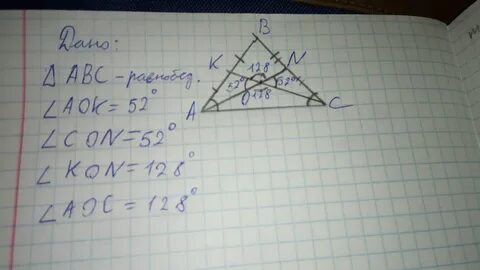 Дано:
△ABC - равнобед.
∠AOK = 52°
∠CON = 52°
∠KON = 128°
∠AOC = 128°
B
K
N
128
52°
52°
O
128
A
C